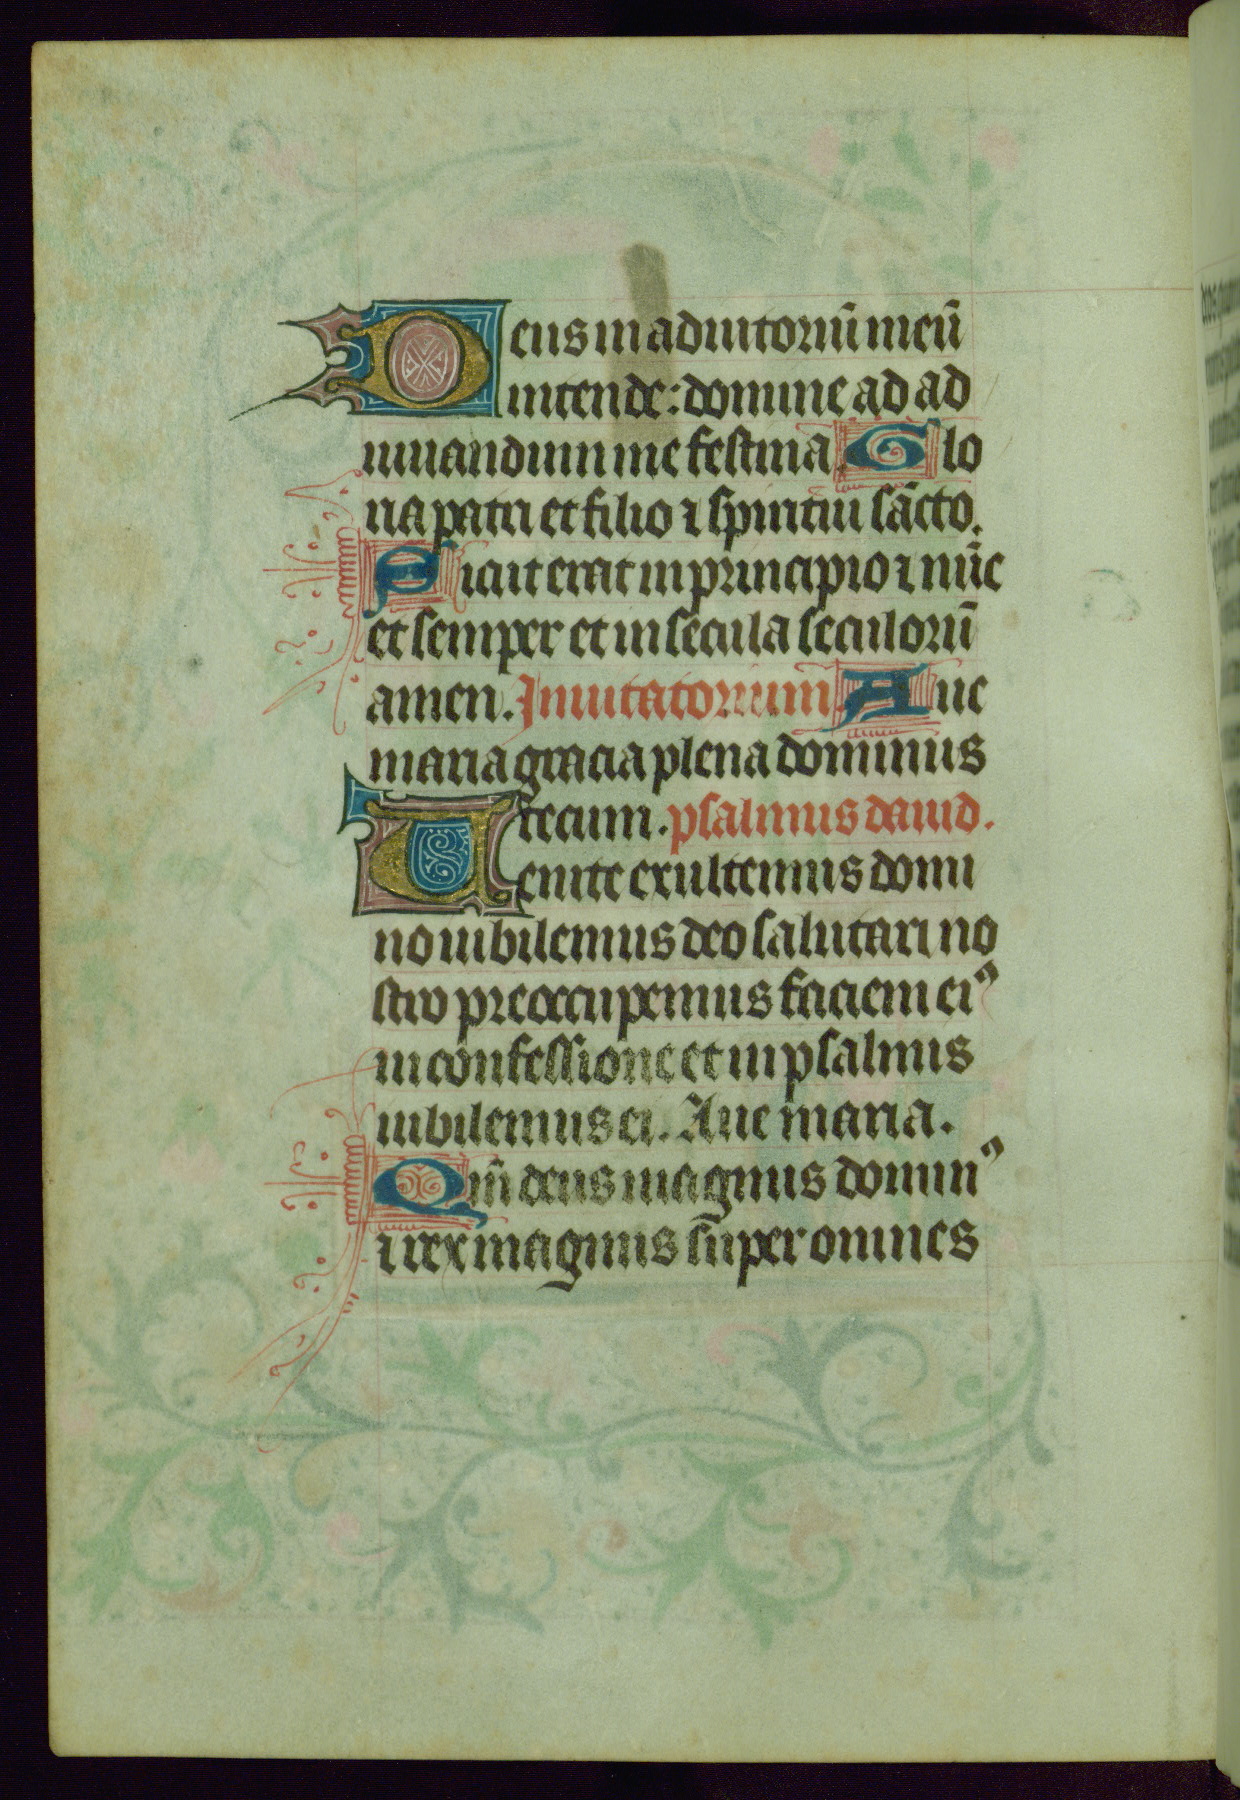 Deus in adiutoriū meū
intende: domine ad ad
iuuandum me festina Glo
ria patri et filio ⁊ spiritiu sācto.
Sicut erat in principio ⁊ nūc
et semper et in secula seculorū
amen. Inuitatorium Aue
maria gracia plena dominus
tecum. psalmus dauid.
Uenite exultemus domi
no iubilemus deo salutari no
stro preoccupemus faciem eiꝰ
in confessione et in psalmis
iubilemus ei. Aue maria.
Qm̄ deus magnus dominꝰ
⁊ rex magnus super omnes